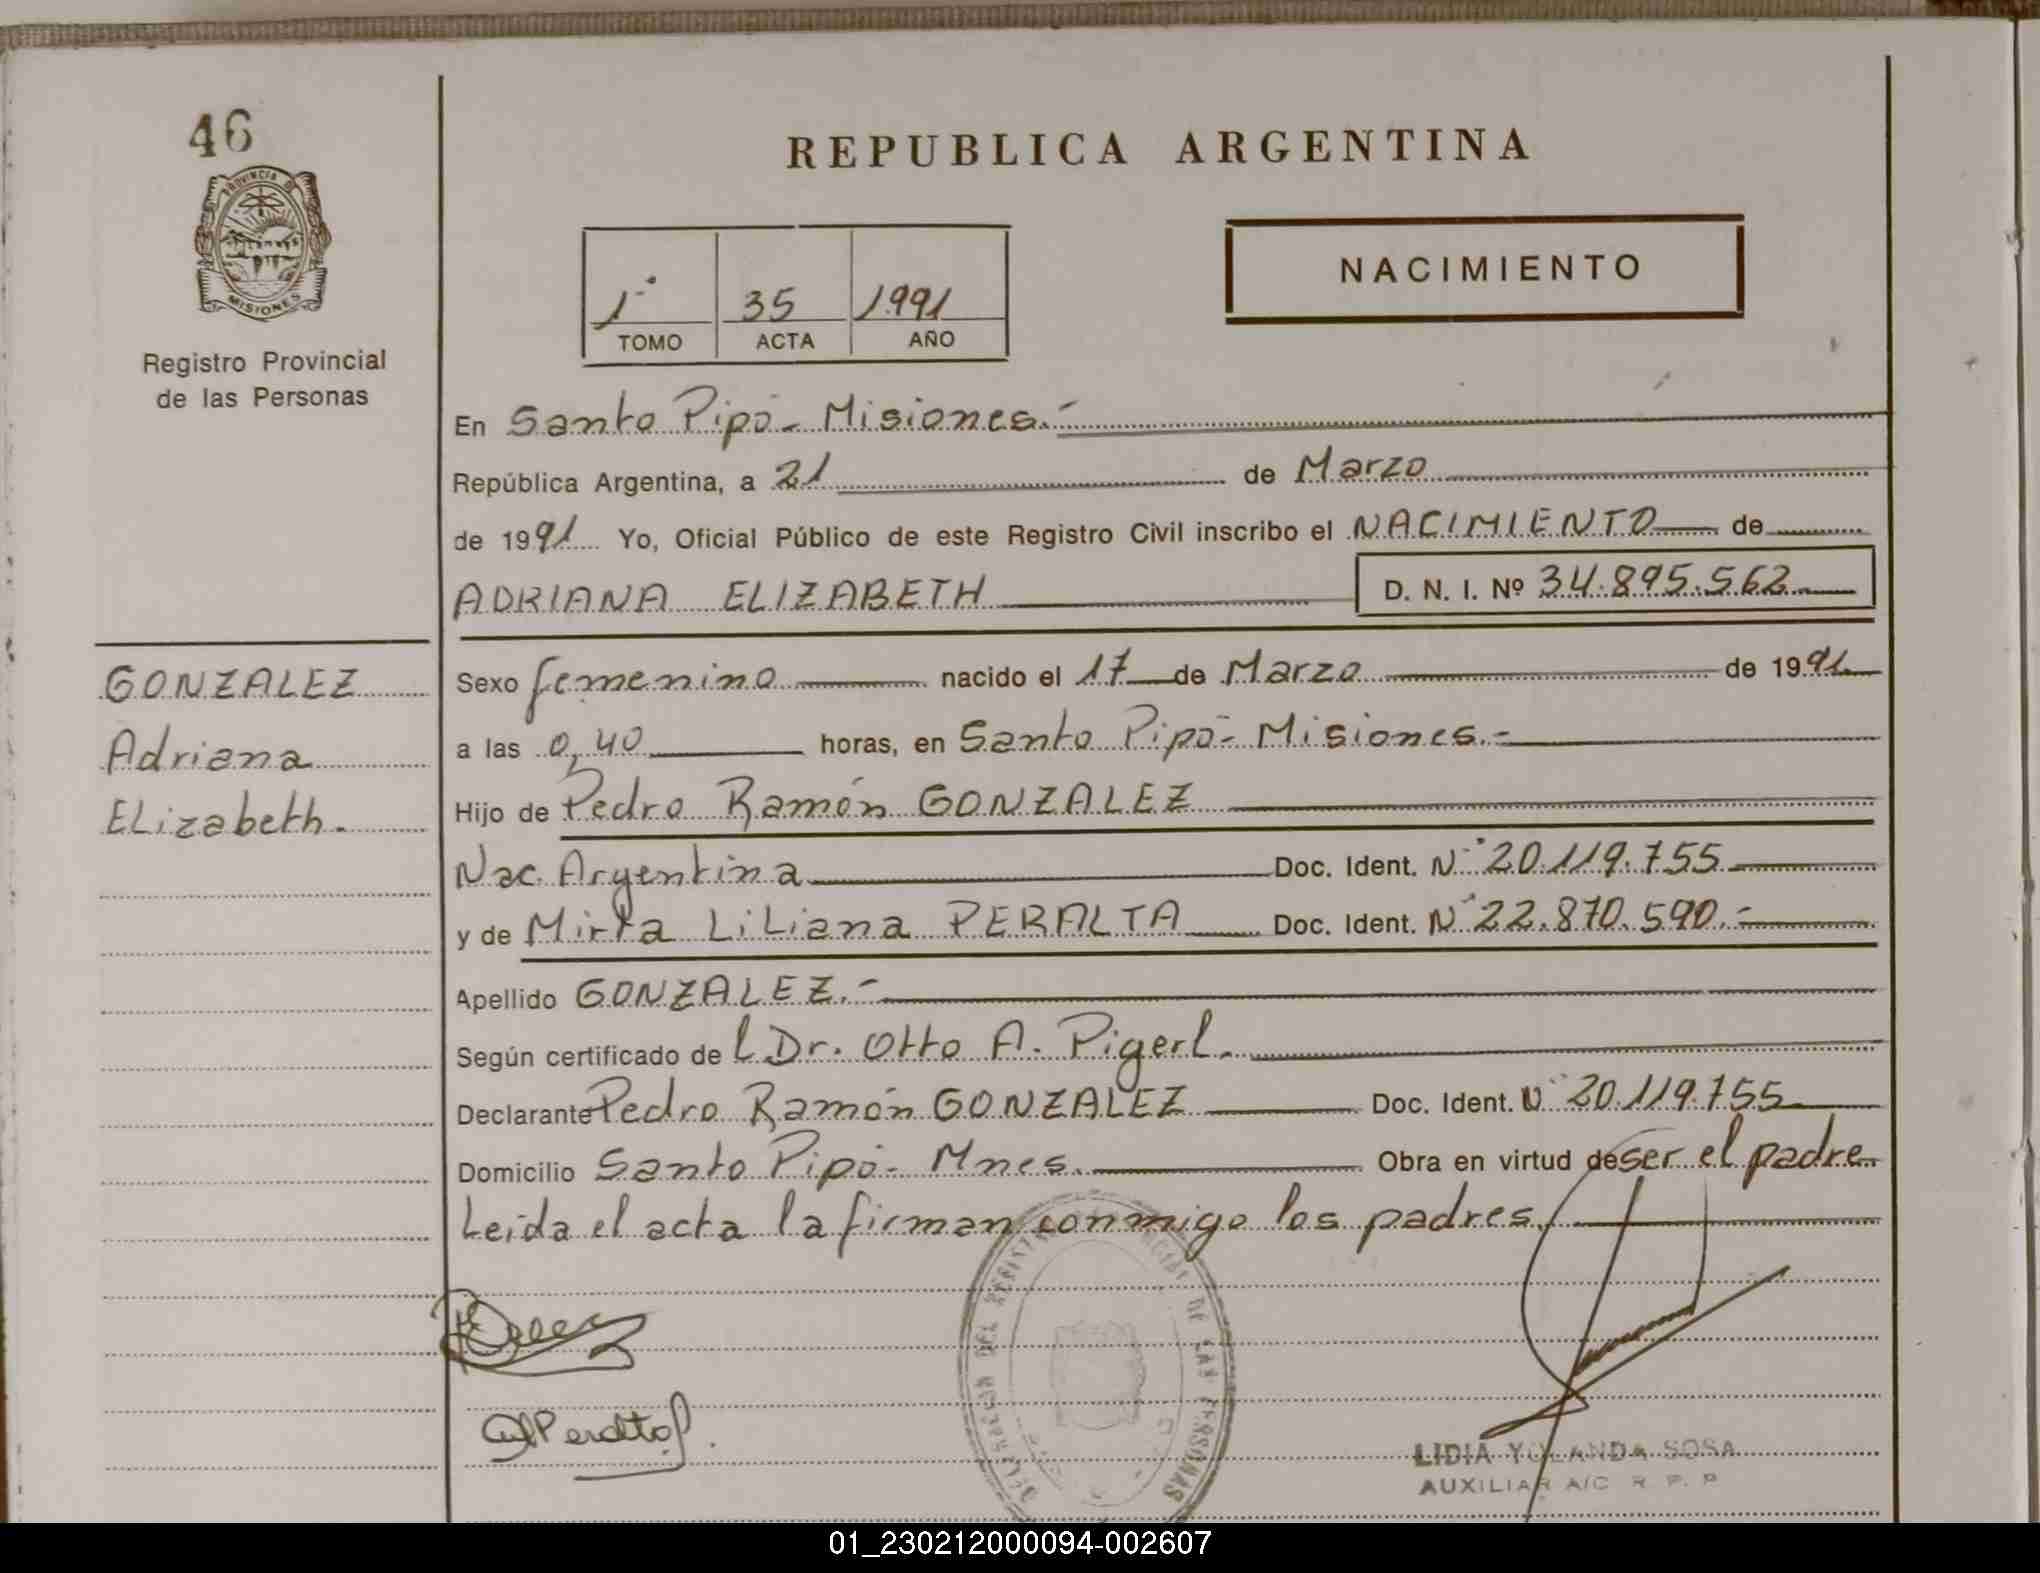 46
PROVINCIA DE
MISIONES
Registro Provincial
de las Personas
REPUBLICA ARGENTINA
1º 35 1991
TOMO ACTA AÑO
NACIMIENTO
En Santo Pipó - Misiones.-
República Argentina, a 21 de Marzo
de 1991 Yo, Oficial Público de este Registro Civil inscribo el NACIMIENTO de
ADRIANA ELIZABETH D. N. I. Nº 34.895.562
GONZALEZ
Adriana
ELizabeth.
Sexo femenino nacido el 17 de Marzo de 1991
a las 0,40 horas, en Santo Pipó - Misiones.-
Hijo de Pedro Ramón GONZALEZ
Nac. Argentina Doc. Ident. Nº 20.119.755
y de Mirta LiLiana PERALTA Doc. Ident. Nº 22.870.590.-
Apellido GONZALEZ.-
Según certificado de l Dr. Otto A. Pigerl.
Declarante Pedro Ramón GONZALEZ Doc. Ident. Nº 20.119.755
Domicilio Santo Pipó - Mnes. Obra en virtud de ser el padre
Leída el acta la firman conmigo los padres.
DEL DE LAS PERSONAS
Peralta
LIDIA YOLANDA SOSA
AUXILIAR A/C R. P. P
01_230212000094-002607